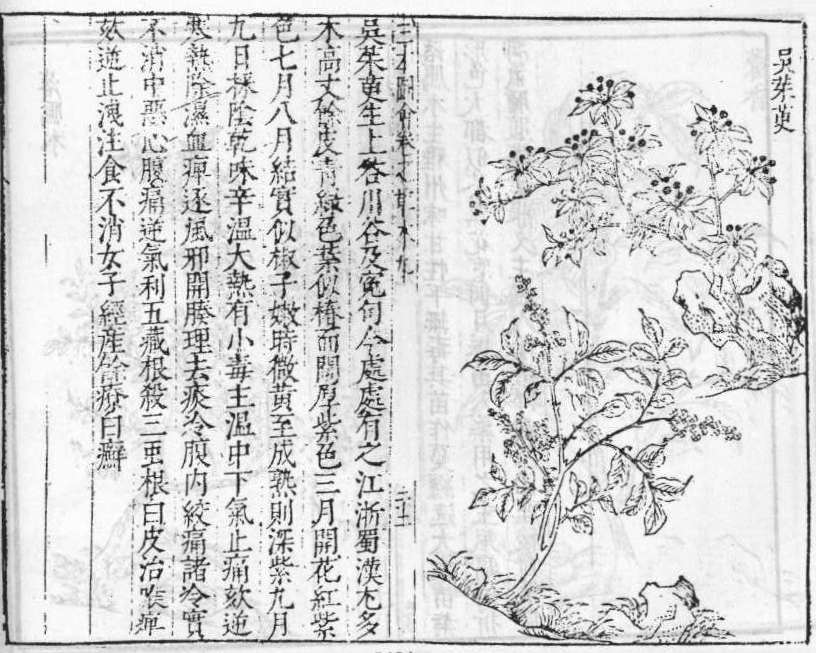 吳茱萸
三才圖會
吳茱萸生上谷川谷及冤句今處處有之江浙蜀漢尤多
木高丈餘皮青綠色葉似椿而闊厚紫色三月開花紅紫
色七月八月結實似椒子嫩時微黃至成熟則深紫九月
九日採陰乾味辛溫大熱有小毒主溫中下氣止痛欬逆
寒熱除濕血痺逐風邪開腠理去痰冷腹內絞痛諸冷實
不消中惡心腹痛逆氣利五藏根殺三虫根白皮治喉痺
欬逆止洩注食不消女子經產餘療白癬